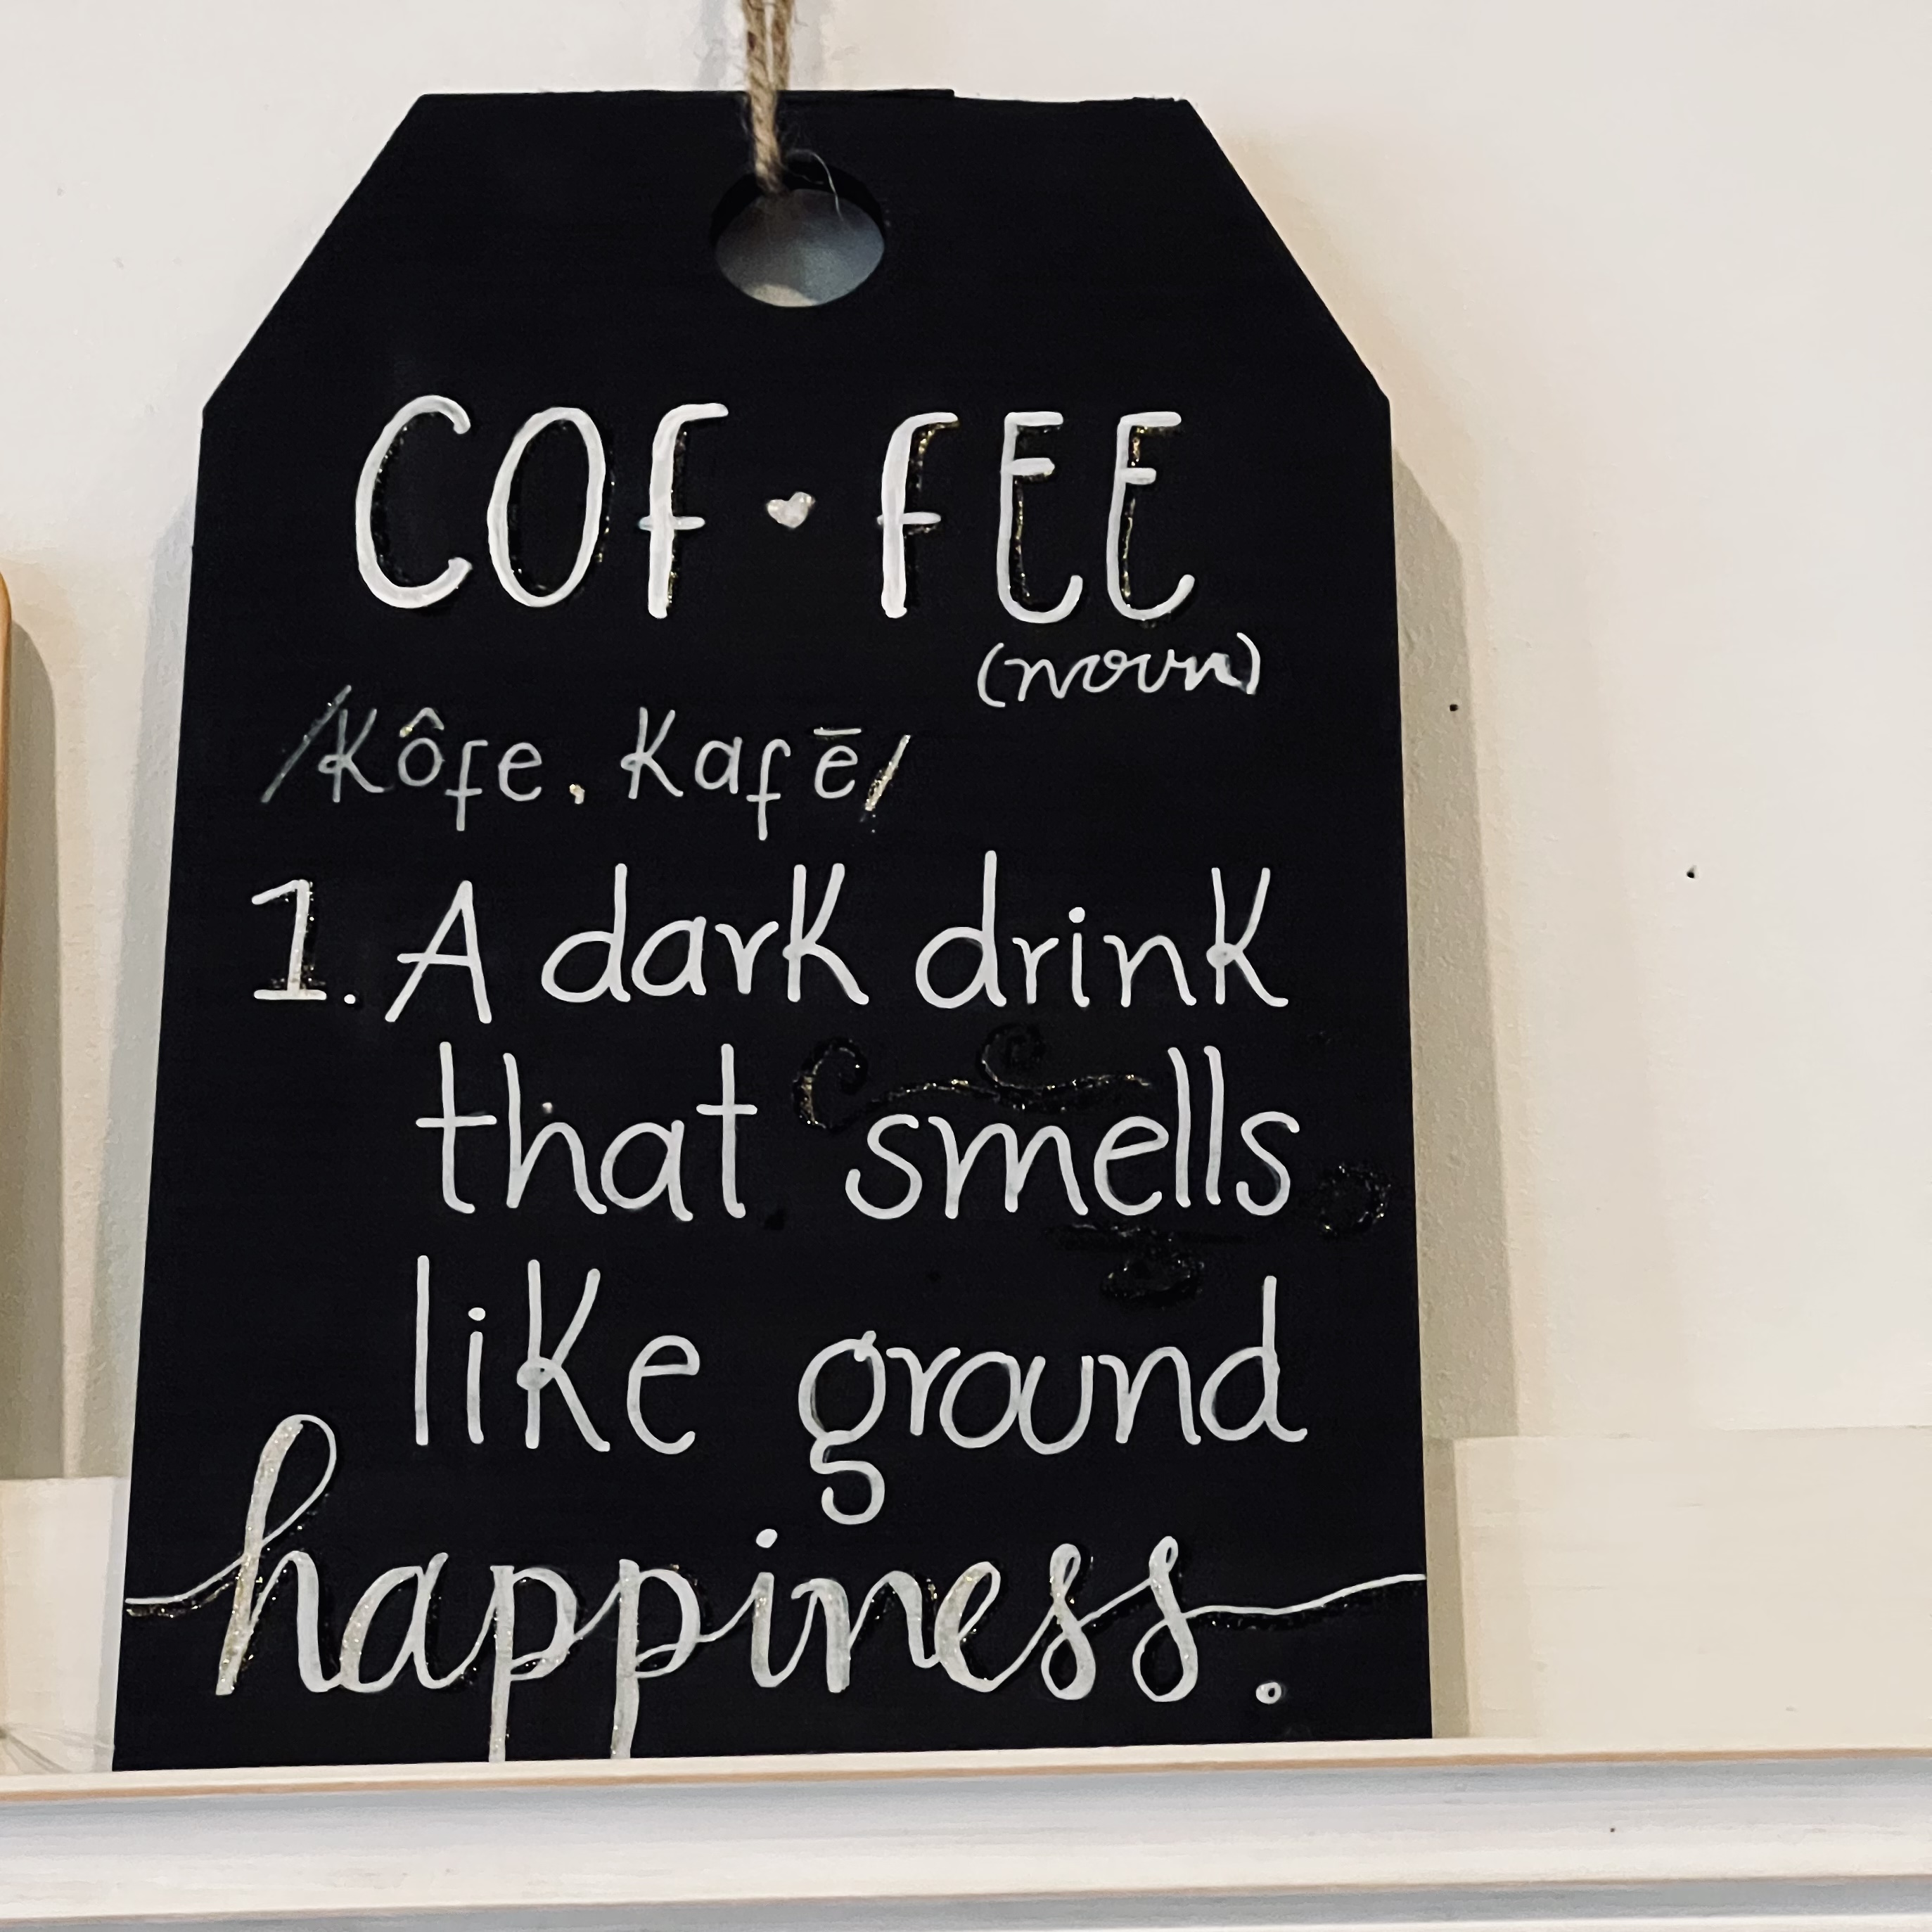 COf♥fEE
(noun)
/Kôfe, Kafē/
1. A dark drink
that smells
like ground
happiness.